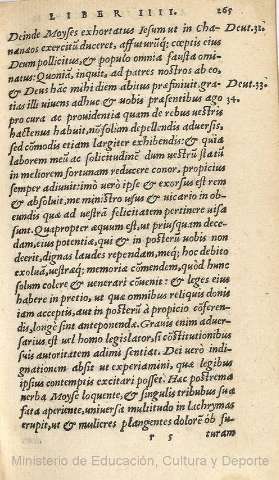 LIBER IIII. 265
Deinde Moyses exhortatus Iesum ut in Cha- Deut.32.
nanæos exercitū duceret, affuturūq; cœptis eius
Deum pollicitus, & populo omnia fausta omi-
natus: Quoniā, inquit, ad patres nostros ab eo,
& Deus hāc mihi diem abitus præfiniuit, gra- Deut.33.
tias illi uiuens adhuc & uobis præsentibus ago 34.
pro cura ac prouidentia quam de rebus uestris
hactenus habuit, nō solum depellendis aduersis,
sed cōmodis etiam largiter exhibendis: & quia
laborem meū ac solicitudinē dum uestrū statū
in meliorem fortunam reducere conor, propicius
semper adiuuit: imò uerò ipse & exorsus est rem
& absoluit, me ministro usus & uicario in ob-
eundis quæ ad uestrā felicitatem pertinere uisa
sunt. Quapropter æquum est, ut priusquàm dece-
dam, eius potentia, qui & in posterū uobis non
deerit, dignas laudes rependam, meq; hoc debito
exoluā, uestræq; memoriæ cōmendem, quòd hunc
solum colere & uenerari cōuenit: & leges eius
habere in pretio, ut quæ omnibus reliquis donis
iam acceptis, aut in posterū à propicio cōferen-
dis, longè sint anteponendæ. Grauis enim aduer-
sarius est uel homo legislator, si cōstitutionibus
suis autoritatem adimi sentiat. Dei uerò indi-
gnationem absit ut experiamini, quæ legibus
ipsius contemptis excitari posset. Hæc postrema
uerba Moyse loquente, & singulis tribubus sua
fata aperiente, uniuersa multitudo in lachrymas
erupit, ut & mulieres plangentes dolorē ob fu-
r 5 turam
Ministerio de Educación, Cultura y Deporte